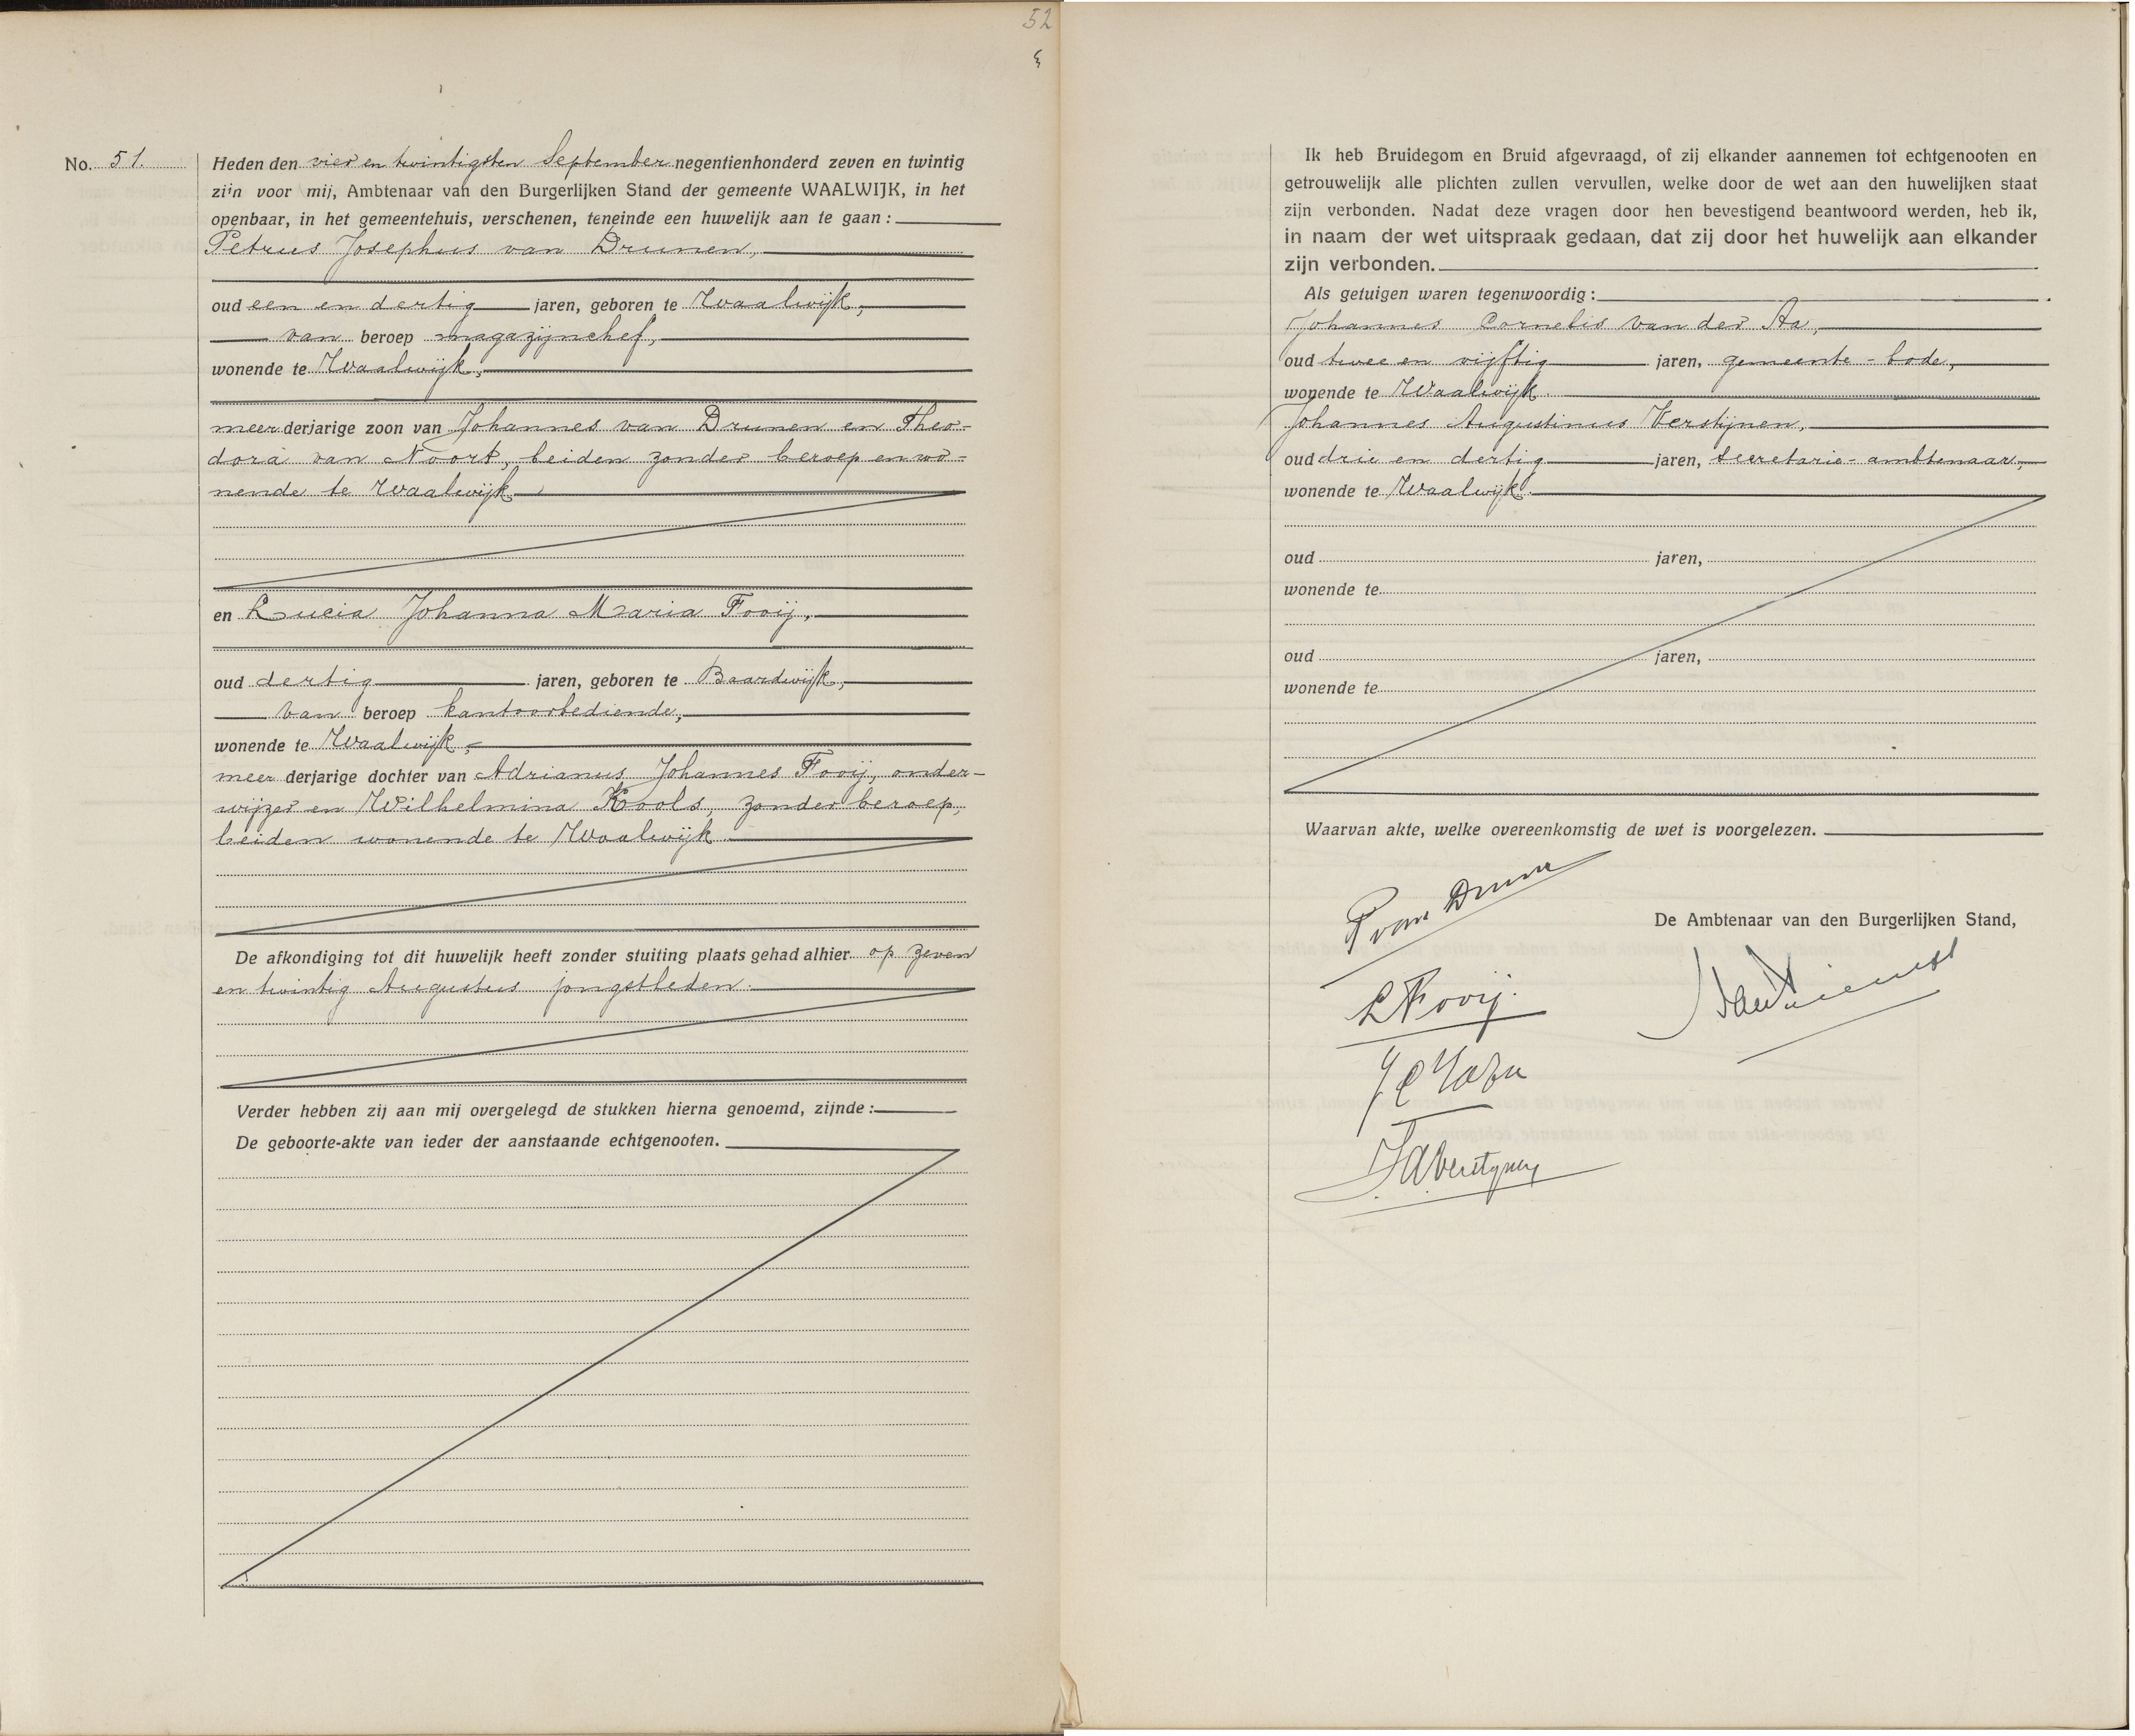 52
No. 51.
Heden den vier en twintigsten September negentienhonderd zeven en twintig
zijn voor mij, Ambtenaar van den Burgerlijken Stand der gemeente WAALWIJK, in het
openbaar, in het gemeentehuis, verschenen, teneinde een huwelijk aan te gaan :
Petrus Josephus van Drunen,
oud een en dertig jaren, geboren te Waalwijk,
van beroep magazijnchef,
wonende te Waalwijk,
meerderjarige zoon van Johannes van Drunen en Theo-
dora van Noort, beiden zonder beroep en wo-
nende te Waalwijk
en Lucia Johanna Maria Fooij,
oud dertig jaren, geboren te Baardwijk,
van beroep kantoorbediende,
wonende te Waalwijk,
meerderjarige dochter van Adrianus Johannes Fooij, onder-
wijzer en Wilhelmina Kools, zonder beroep,
beiden wonende te Waalwijk.
De afkondiging tot dit huwelijk heeft zonder stuiting plaats gehad alhier op zeven
en twintig Augustus jongstleden.
Verder hebben zij aan mij overgelegd de stukken hierna genoemd, zijnde :
De geboorte-akte van ieder der aanstaande echtgenooten.
Ik heb Bruidegom en Bruid afgevraagd, of zij elkander aannemen tot echtgenooten en
getrouwelijk alle plichten zullen vervullen, welke door de wet aan den huwelijken staat
zijn verbonden. Nadat deze vragen door hen bevestigend beantwoord werden, heb ik,
in naam der wet uitspraak gedaan, dat zij door het huwelijk aan elkander
zijn verbonden.
Als getuigen waren tegenwoordig :
Johannes Cornelis van der Aa,
oud twee en vijftig jaren, gemeente-bode,
wonende te Waalwijk.
Johannes Augustinus Verstijnen,
oud drie en dertig jaren, secretarie-ambtenaar,
wonende te Waalwijk.
oud jaren,
wonende te
oud jaren,
wonende te
Waarvan akte, welke overeenkomstig de wet is voorgelezen.
P van Drunen
De Ambtenaar van den Burgerlijken Stand,
L Fooij.
JAVerstijnen